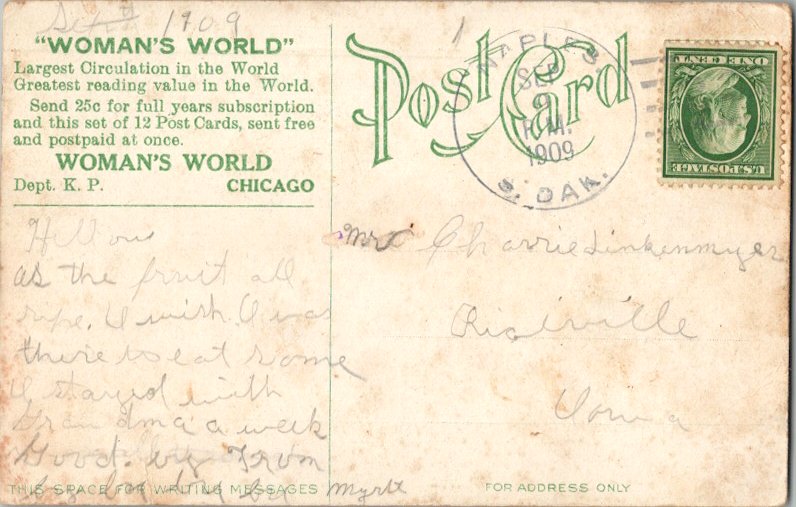 1909
"WOMAN'S WORLD"
Largest Circulation in the World
Greatest reading value in the World.
Send 25c for full years subscription
and this set of 12 Post Cards, sent free
and postpaid at once.
WOMAN'S WORLD
Dept. K. P. CHICAGO
Post Card
NAPLES.
SEP
P.M.
1909
S. DAK.
U.S. POSTAGE
ONE CENT
as the fruit all
ripe. I wish I was
there to eat some
I stayed with
Grandma a week
Good. by From
Myrtle
Mr Charrie Linkenmyer
Riceville
Iowa
THIS SPACE FOR WRITING MESSAGES
FOR ADDRESS ONLY